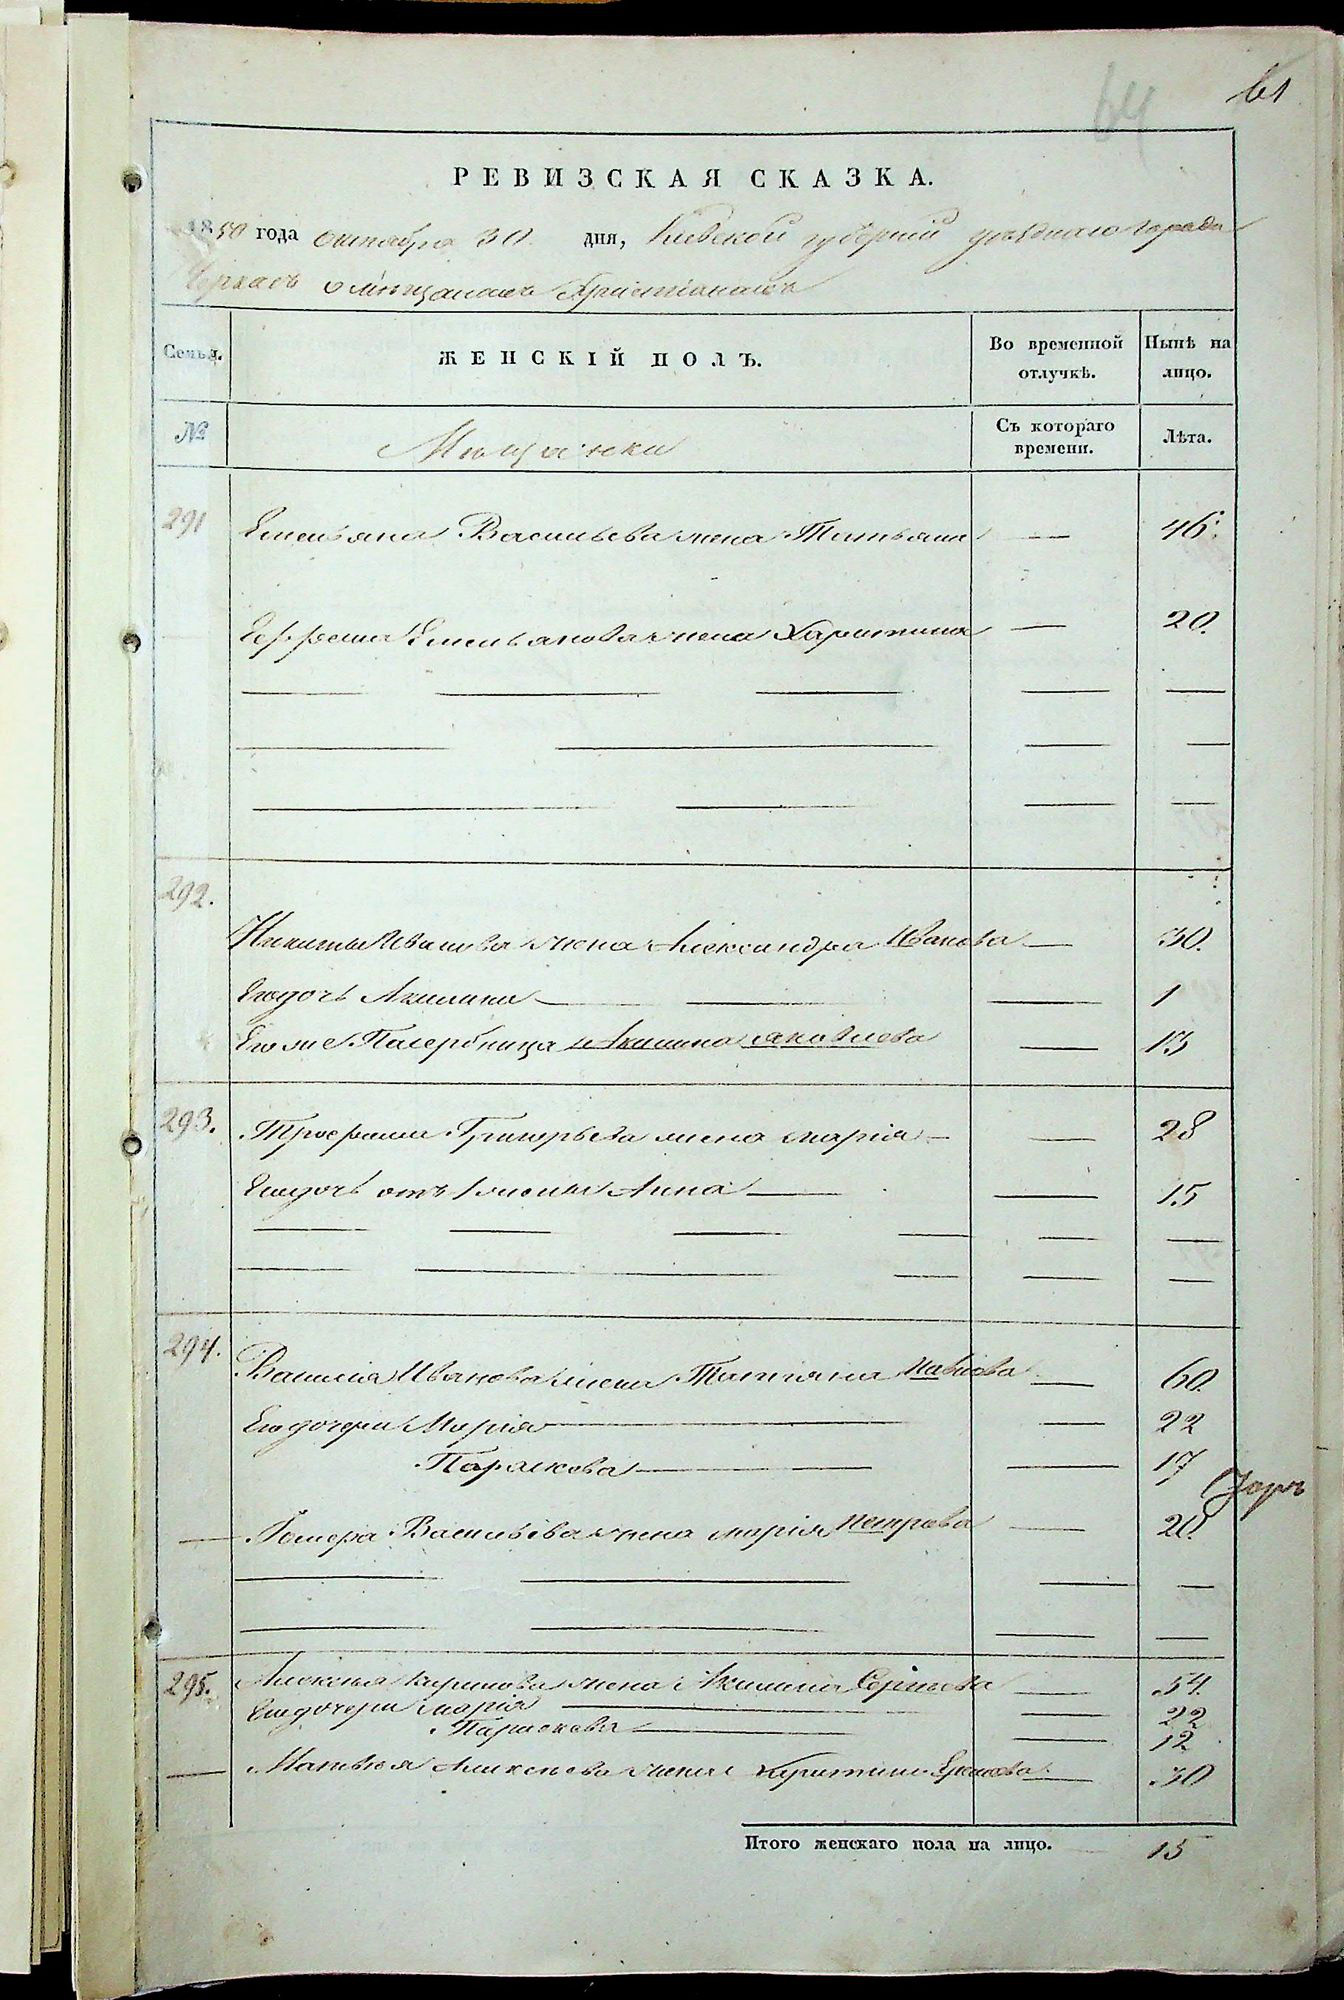 61
64
РЕВИЗСКАЯ СКАЗКА.
1850 года октября 30 дня, Киевской губерніи уезднаго города
Черкасъ о мѣщанахъ Христіанахъ
Семья. ЖЕНСКІЙ ПОЛЪ. Во временной отлучкѣ. Нынѣ на лицо.
№ Мѣщанки Съ котораго времени. Лѣта.
291 Емельяна Васильева жена Татьяна — 46.
Ефрема Емельянова жена Харитина — 20.
292.
Никиты Иванова жена Александра Иванова — 30.
Его дочь Акилина — 1
Его же Акилина Яковлева — 13
293. Трофима Григорьева жена Марія — 28
Его дочь отъ Анна — 15
294. Василія Иванова жена Татіяна Павлова — 60.
Его дочери Марія — 22
Параскева — 17
Васильева жена Марія Петрова — 20.
295. Алексея Карпова жена Акилина Сергіева — 54.
Его дочери Марія — 22
Параскева — 12
Матвея Алексеева жена Харитина — 30
Итого женскаго пола на лицо. 15